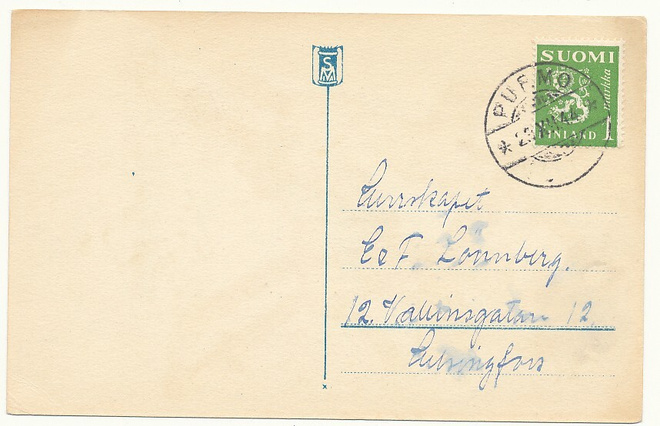 SMV
SUOMI
1 markka
FINLAND
PURMO
Herrskapet
E & F. Lönnberg.
12. Vallinsgatan 12
Helsingfors